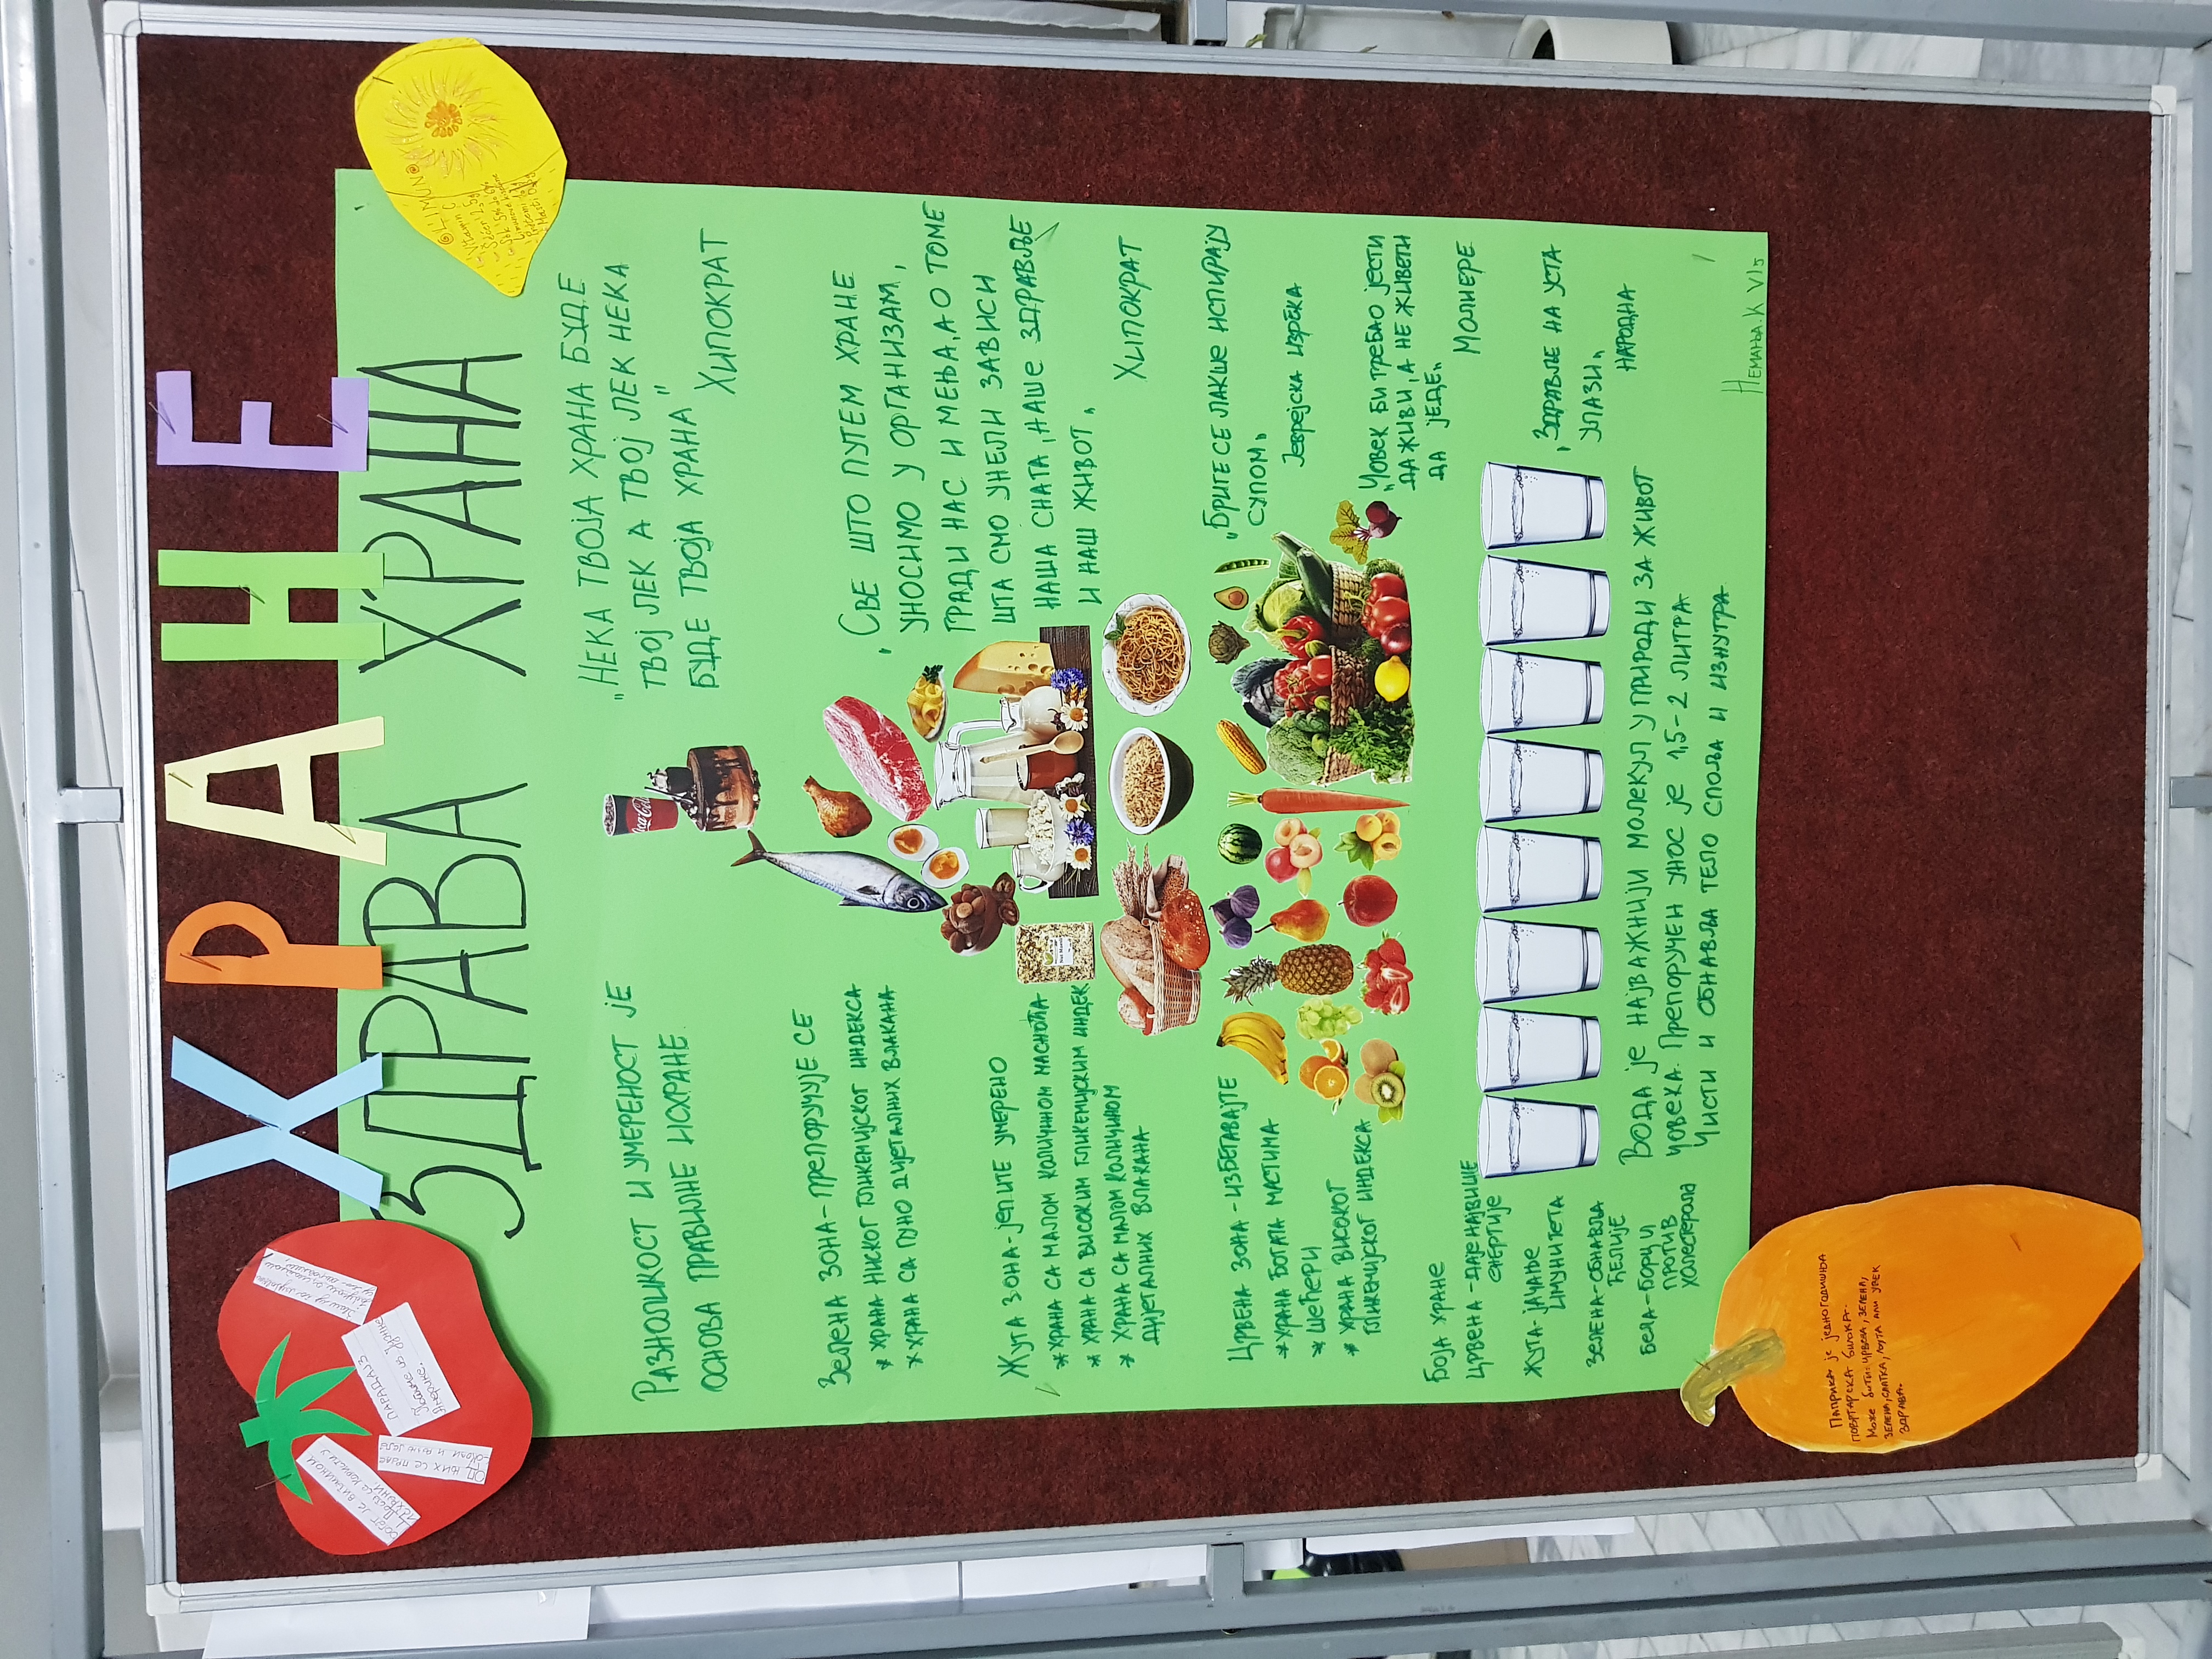 ХРАНЕ
ЗДРАВА ХРАНА
LIMUN
Vitamin C
РАЗНОЛИКОСТ И УМЕРЕНОСТ ЈЕ
ОСНОВА ПРАВИЛНЕ ИСХРАНЕ.
ЗЕЛЕНА ЗОНА-ПРЕПОРУЧУЈЕ СЕ
* ХРАНА НИСКОГ ГЛИКЕМИЈСКОГ ИНДЕКСА
* ХРАНА СА ПУНО ДИЈЕТАЛНИХ ВЛАКАНА
ЖУТА ЗОНА-ЈЕДИТЕ УМЕРЕНО
* ХРАНА СА МАЛОМ КОЛИЧИНОМ МАСНОЋА
* ХРАНА СА ВИСОКИМ ГЛИКЕМИЈСКИМ ИНДЕК
* ХРАНА СА МАЛОМ КОЛИЧИНОМ
ДИЈЕТАЛНИХ ВЛАКАНА
ЦРВЕНА ЗОНА-ИЗБЕГАВАЈТЕ
* ХРАНА БОГАТА МАСТИМА
* ШЕЋЕРИ
* ХРАНА ВИСОКОГ
ГЛИКЕМИЈСКОГ ИНДЕКСА
БОЈА ХРАНЕ
ЦРВЕНА-ДАЈЕ НАЈВИШЕ
ЕНЕРГИЈЕ
ЖУТА-ЈАЧАЊЕ
ИМУНИТЕТА
ЗЕЛЕНА-ОБНАВЉА
ЋЕЛИЈЕ
БЕЛА-БОРЦИ
ПРОТИВ
ХОЛЕСТЕРОЛА
Coca-Cola
„НЕКА ТВОЈА ХРАНА БУДЕ
ТВОЈ ЛЕК А ТВОЈ ЛЕК НЕКА
БУДЕ ТВОЈА ХРАНА"
ХИПОКРАТ
„СВЕ ШТО ПУТЕМ ХРАНЕ
УНОСИМО У ОРГАНИЗАМ,
ГРАДИ НАС И МЕЊА, А О ТОМЕ
ШТА СМО УНЕЛИ ЗАВИСИ
НАША СНАГА, НАШЕ ЗДРАВЉЕ
И НАШ ЖИВОТ„
ХИПОКРАТ
„БРИГЕ СЕ ЛАКШЕ ИСПИРАЈУ
СУПОМ„
ЈЕВРЕЈСКА ИЗРЕКА
„ЧОВЕК БИ ТРЕБАО ЈЕСТИ
ДА ЖИВИ, А НЕ ЖИВЕТИ
ДА ЈЕДЕ„
МОЛИЕРЕ
„ЗДРАВЉЕ НА УСТА
УЛАЗИ„
НАРОДНА
ВОДА ЈЕ НАЈВАЖНИЈИ МОЛЕКУЛ У ПРИРОДИ ЗА ЖИВОТ
ЧОВЕКА. ПРЕПОРУЧЕН УНОС ЈЕ 1,5-2 ЛИТРА
ЧИСТИ И ОБНАВЉА ТЕЛО СПОЉА И ИЗНУТРА
НЕМАЊА.К VI5
ПАРАДАЈЗ
Америке.
ПАПРИКА ЈЕ ЈЕДНОГОДИШЊА
ПОВРТАРСКА БИЉКА.
МОЖЕ БИТИ: ЦРВЕНА, ЗЕЛЕНА,
ЗЕЛЕНА, СЛАТКА, ЉУТА АЛИ УВЕК
ЗДРАВА.